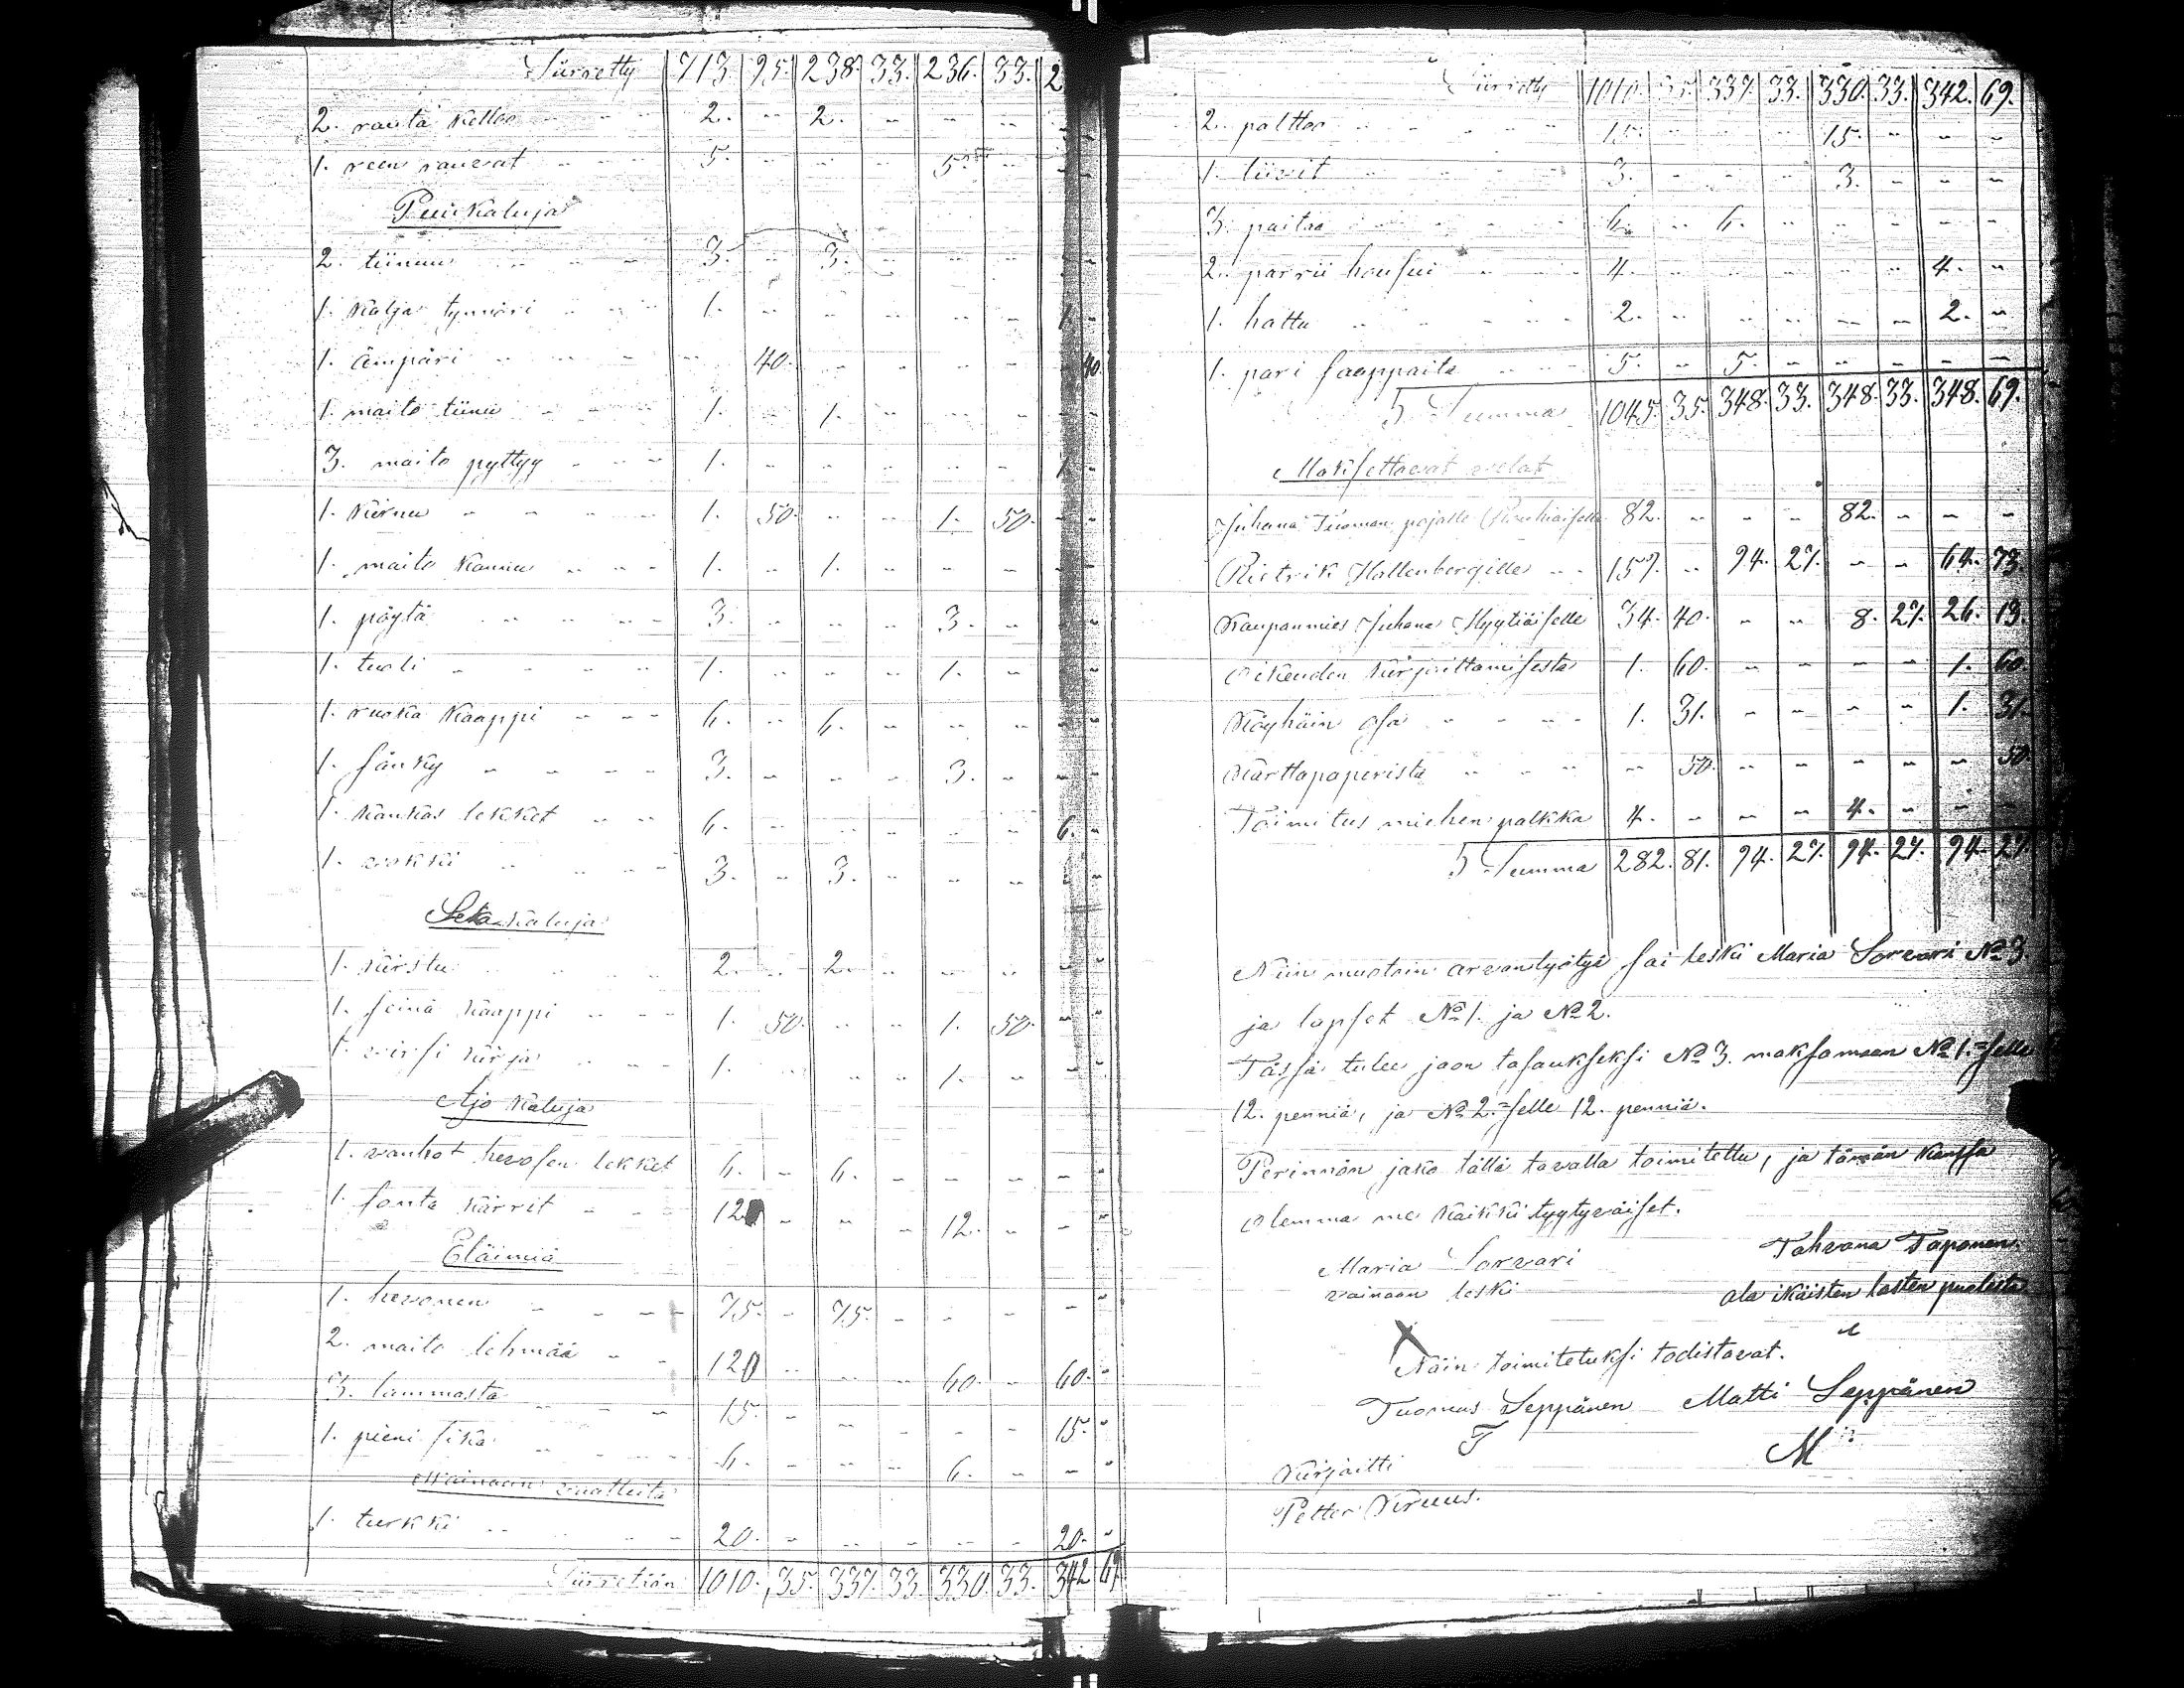 Siirretty 713. 95. 238. 33. 236. 33. 2
2. rauta kelloo 2. " 2. " " "
1. reen raurat 5. " " " 5. "
Puukaluja
2. tiinuu 3. " 3. " " "
1. kalja tynnöri 1. " " " " " 1. "
1. ämpäri " 40. " " " " " 40.
1. maito tiinu 1. " 1. " " " " "
3. maito pyttyy 1. " " " " " 1 "
1. kiirnu 1. 50. " " 1. 50. " "
1. maito kannu 1. " 1. " " " " "
1. pöytä 3. " " " 3. " " "
1. tuoli 1. " " " 1. " " "
1. ruoka kaappi 6. " 6. " " " " "
1. sänky 3. " " " 3. " " "
1. kankas lekket 6. " " " " " 6. "
1. wokki 3. " 3. " " " " "
Seka kaluja
1. kirstu 2. " 2. " " " " "
1. seinä kaappi 1. 50. " " 1. 50. " "
1. wirsi kirja 1. " " " 1. " " "
Ajo kaluja
1. vanhat hevosen lekket 6. " 6. " " " " "
1. sonta kärrit 12 " " " 12. " " "
Eläimiä
1. hevonen 75. " 75. " " " " "
2. maito lehmää 120 " " " 60. " 60. "
3. lammasta 15. " " " " " 15. "
1. pieni sika 6. " " " 6. " " "
Wainaan vaatteita
1. turkki 20. " " " " " 20. "
Siirretään 1010. 35. 337. 33. 330. 33. 342 69
Siirretty 1010. 35. 337. 33. 330. 33. 342. 69.
2. palttoo 15. " " " 15. " " "
1. liivit 3. " " " 3. " " "
3. paitaa 6. " 6. " " " " "
2. parrii housui 4. " " " " " 4. "
1. hattu 2. " " " " " 2. "
1. pari saappaita 5. " 5. " " " " "
Summa 1045. 35. 348. 33. 348. 33. 348. 69.
Maksettavat velat
Juhana Tuoman pojalle 82. " " " 82. " " "
Rietrik Hallenbergille 157. " 94. 27. " " 64. 73.
Kaupanmies Juhana Hyytiäiselle 34. 40. " " 8. 27. 26. 13.
Oikeuden kirjoittamisesta 1. 60. " " " " 1. 60
Köyhäin osa 1. 31. " " " " 1. 31.
Karttapaperista " 50. " " " " " 50
Toimitus miehen palkka 4. " " " 4. " " "
Summa 282. 81. 94. 27. 94. 27. 94. 27.
Niin muotoin arvontyötyi sai leski Maria Sorvari No 3.
ja lapset No 1. ja No 2.
Tässä tulee jaon tasaukseksi No 3. maksamaan No 1.=selle
12. penniä, ja No 2.=selle 12. penniä.
Perinnön jako tällä tavalla toimitettu, ja tämän kanssa
olemma me kaikki tyytyväiset.
Maria Sorvari Tahvana Taponen
vainaan leski ala ikäisten lasten puolesta
X
Näin toimitetuksi todistavat.
Tuomas Seppänen Matti Seppänen
T M
Kirjoitti
Petter Kruus.